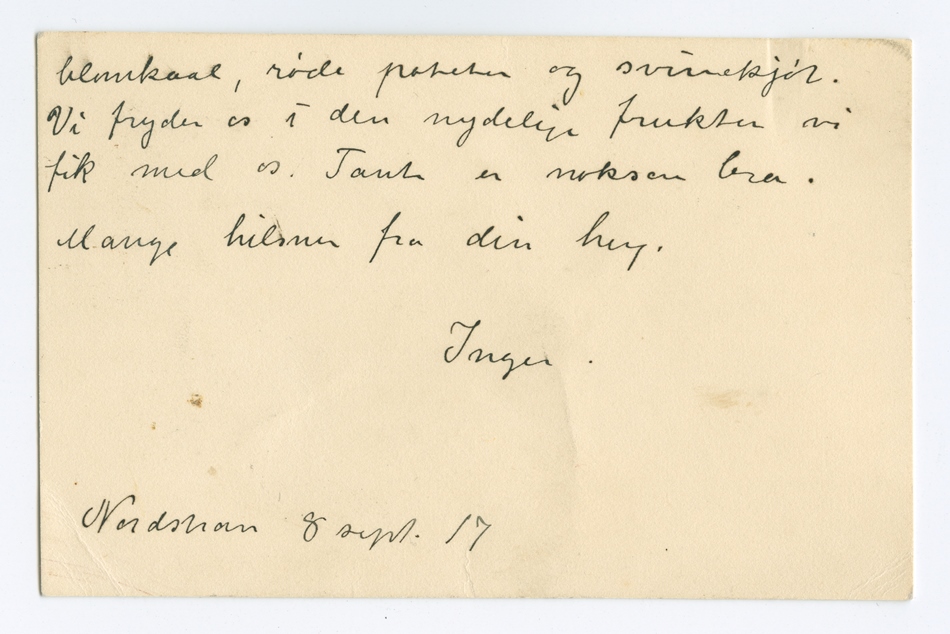 blomkaal, røde poteter og svinekjøt.
Vi fryder os i den nydelige frukten vi
fik med os. Tante er noksaa bra.
Mange hilsner fra din
Inger.
8 sept. 17